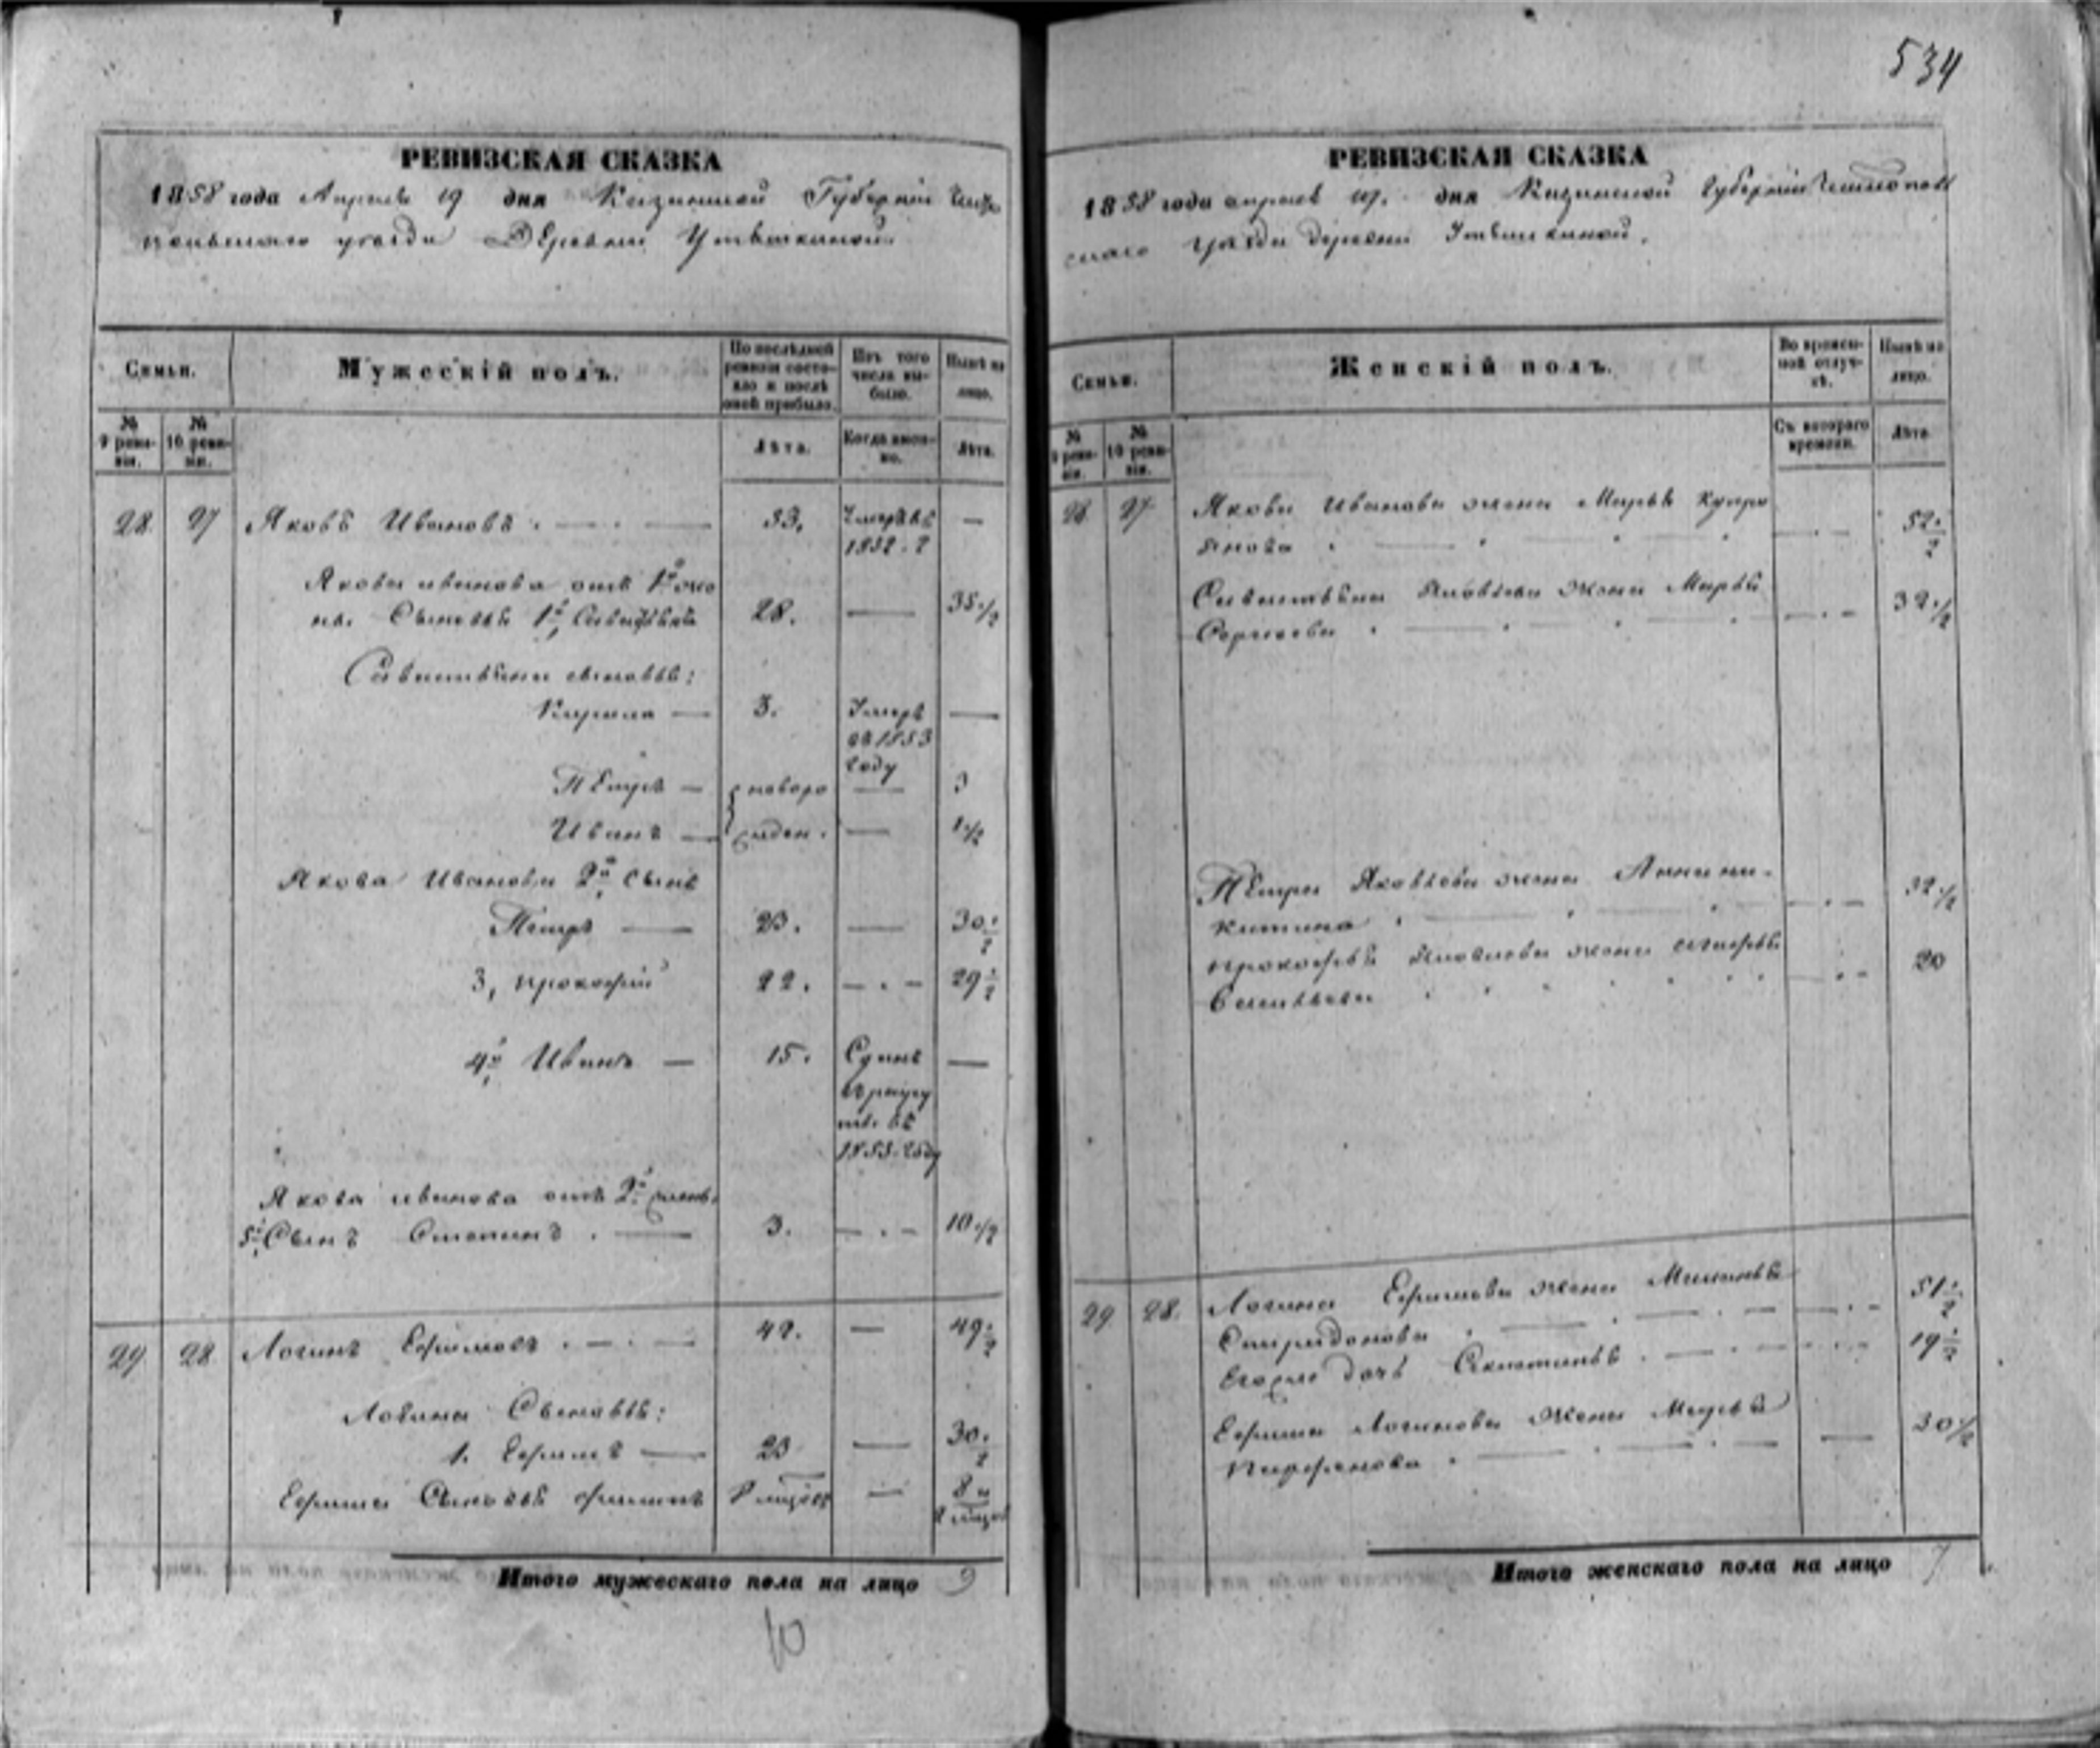 534
РЕВИЗСКАЯ СКАЗКА
1858 года Апреля 19 дня Казанской Губернии Чисто
польскаго уезда Деревни Утяшкиной
Семьи.
Мужескій полъ.
По послѣдней ревизіи состояло и послѣ оной прибыло.
Изъ того числа выбыло.
Нынѣ на лицо.
№ 9 ревизіи.
№ 10 ревизіи.
Лѣта.
Когда именно.
Лѣта.
28 27 Яковъ Ивановъ 53. Умеръ въ —
1852. г
Якова иванова отъ 1й жо
ны Сыновья 1й 28. — 35 1/2
сыновья:
Кирила — 3. Умеръ —
въ 1853
году
Петръ — новоро — 3
Иванъ — жден. — 1 1/2
Якова Иванова 2й сынъ
Петръ — 23. — 30 1/2
3, прокофий 22. — 29 1/2
4й Иванъ — 15. Сданъ —
в рекру
ты въ
1853 году
Якова иванова отъ 2й жены
5й Сынъ Степанъ . — 3. — 10 1/2
29 28 Логинъ Ефимовъ . — 42. — 49 1/2
Логина Сыновья:
1. Ефимъ — 23 — 30 1/2
Ефима Сыновья 8 — 8 и
Итого мужескаго пола на лицо 9
10
РЕВИЗСКАЯ СКАЗКА
1858 года апреля 19. дня Казанской Губернии Чистополь
скаго уезда деревни Утяшкиной.
Семьи.
Женскій полъ.
Во временной отлучкѣ.
Нынѣ на лицо.
№ 9 ревизіи.
№ 10 ревизіи.
Съ котораго времени.
Лѣта
28 27 Якова Иванова жена Марья Купре
янова 52 1/2
Яковлева жена Марья
Сергеева 32 1/2
Петра Яковлева жена Анна ни-
китина 32 1/2
прокофья Яковлева жена
20
29 28. Логина Ефимова жена
Спиридонова 51 1/2
дочь 19 1/2
Ефима Логинова жена
Парфенова 30 1/2
Итого женскаго пола на лицо 7